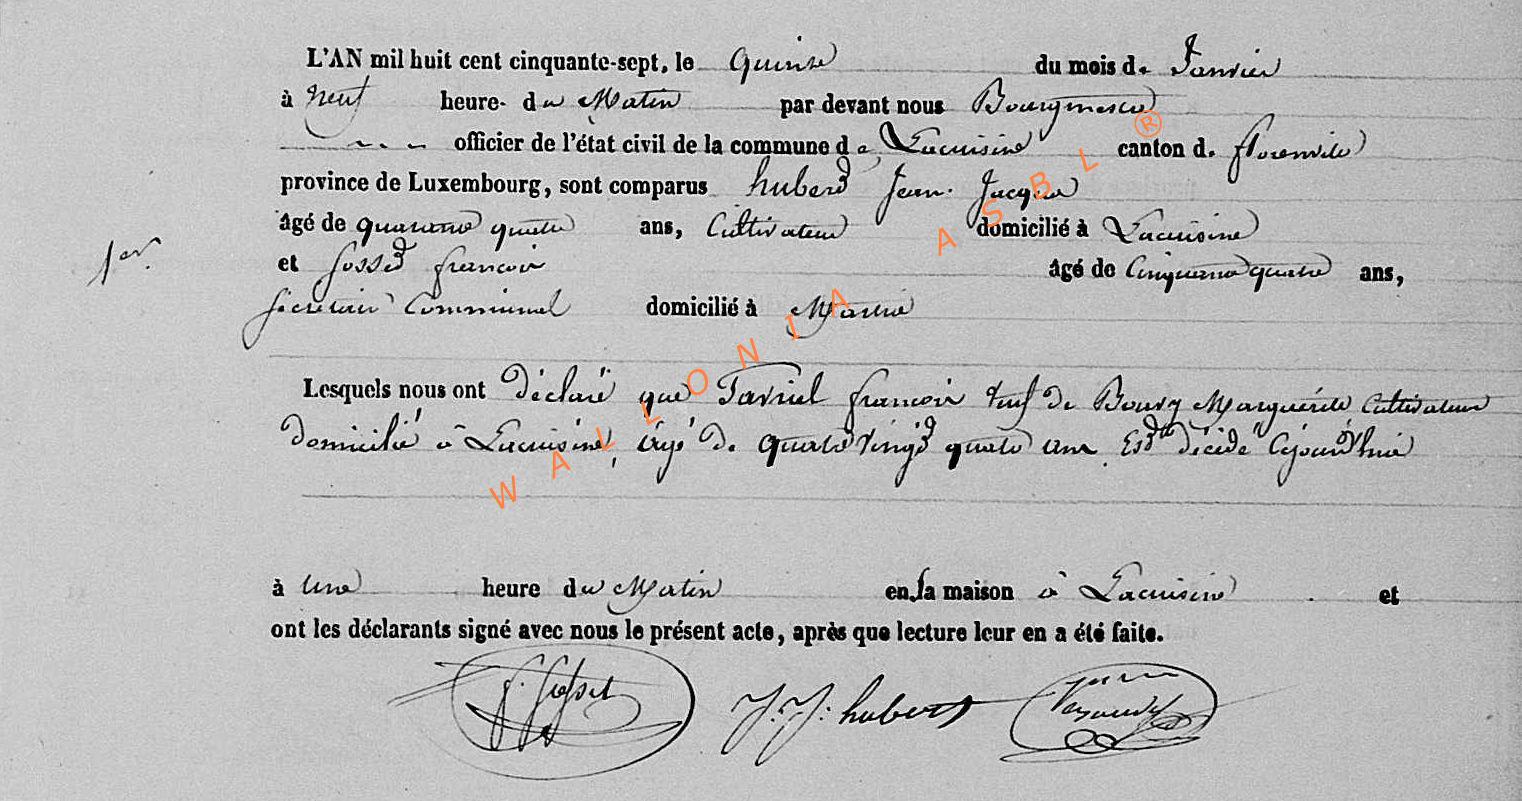 L'AN mil huit cent cinquante-sept, le quinze du mois de Janvier
à neuf heure du Matin par devant nous Bourgmestre
officier de l'état civil de la commune de Lacuisine canton de florenville
province de Luxembourg, sont comparus hubert Jean Jacque
âgé de quarante quatre ans, Cultivateur domicilié à Lacuisine
1er
et Gosset francois âgé de Cinquante quatre ans,
secretaire Communal domicilié à Martué
Lesquels nous ont déclaré que Tavriel francois veuf de Bourg Marguérite Cultivateur
domicilié à Lacuisine, âgé de quatre vingt quatre ans Est décédé Cejourd'hui
à une heure du Matin en sa maison à Lacuisine et
ont les déclarants signé avec nous le présent acte, après que lecture leur en a été faite.
f. Gosset J. J. hubert
WALLONIA ASBL ®